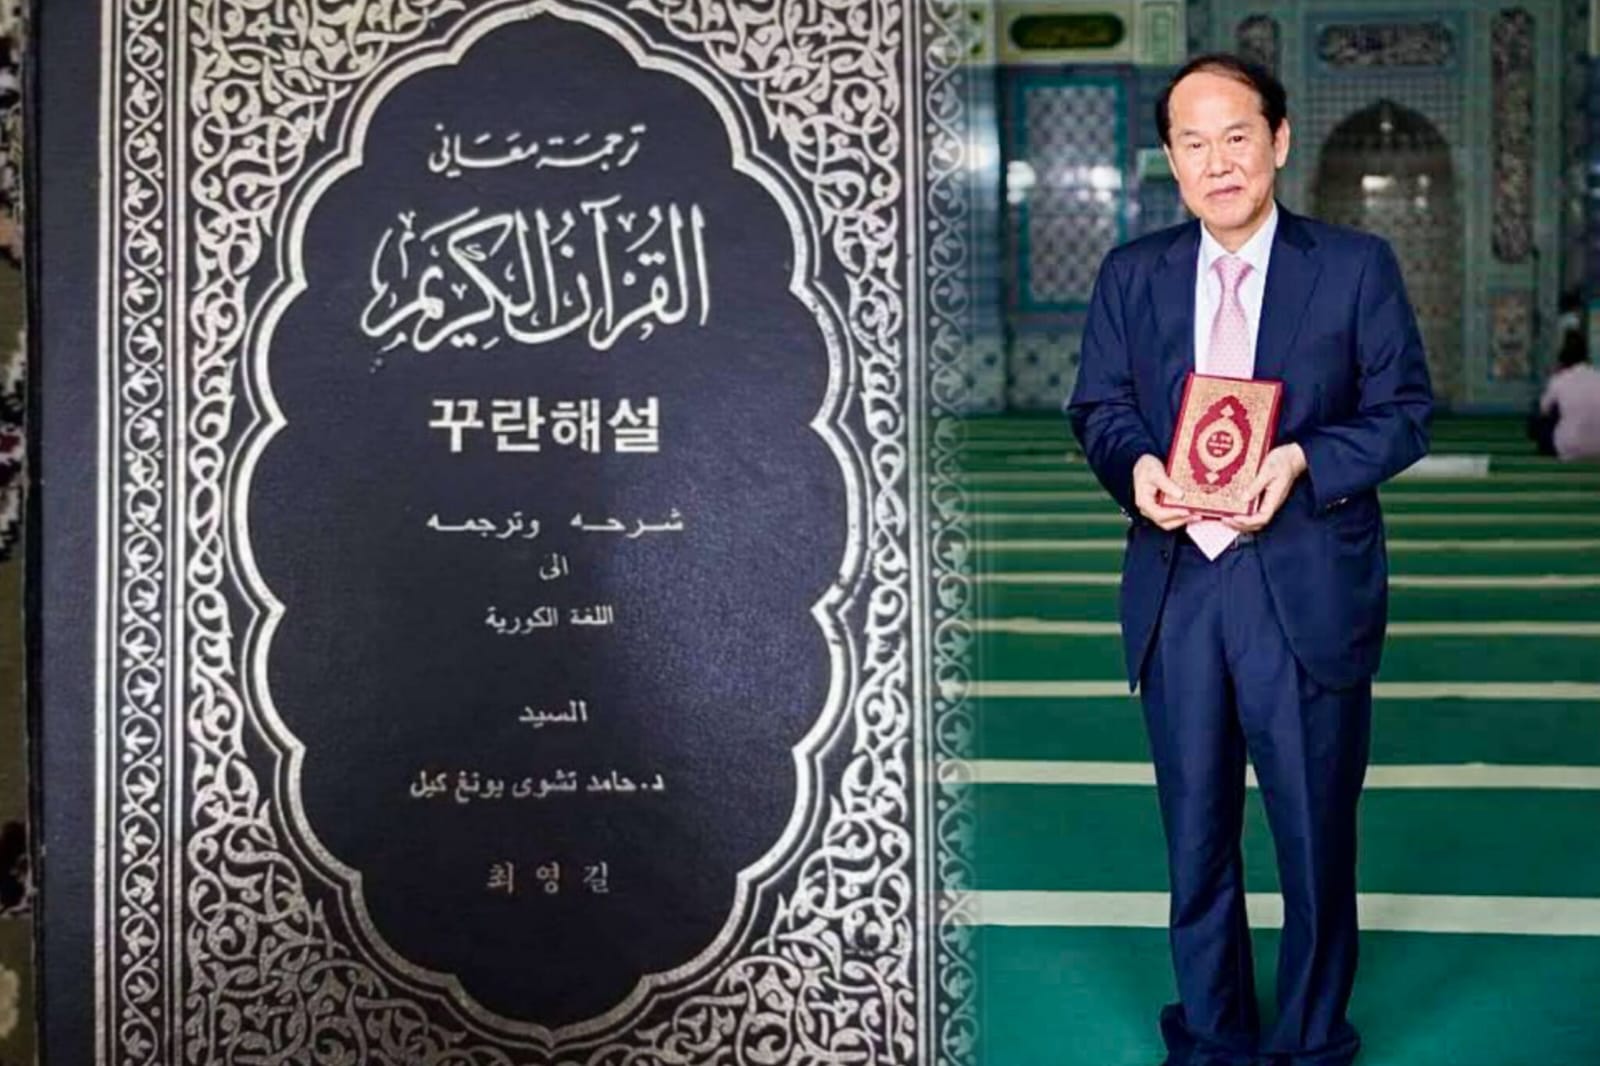 ترجمة معاني
القرآن الكريم
꾸란해설
شرحه وترجمه
الى
اللغة الكورية
السيد
د.حامد تشوى يونغ كيل
최영길